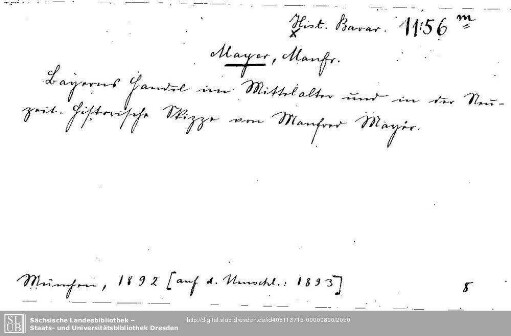 Hist. Bavar. 1156 m
Mayer, Manfr.
Bayerns Handel im Mittelalter und in der Neu-
zeit. Historische Skizze von Manfred Mayer.
München, 1892 [auf d. Umschl.: 1893] 8
Sächsische Landesbibliothek –
Staats- und Universitätsbibliothek Dresden